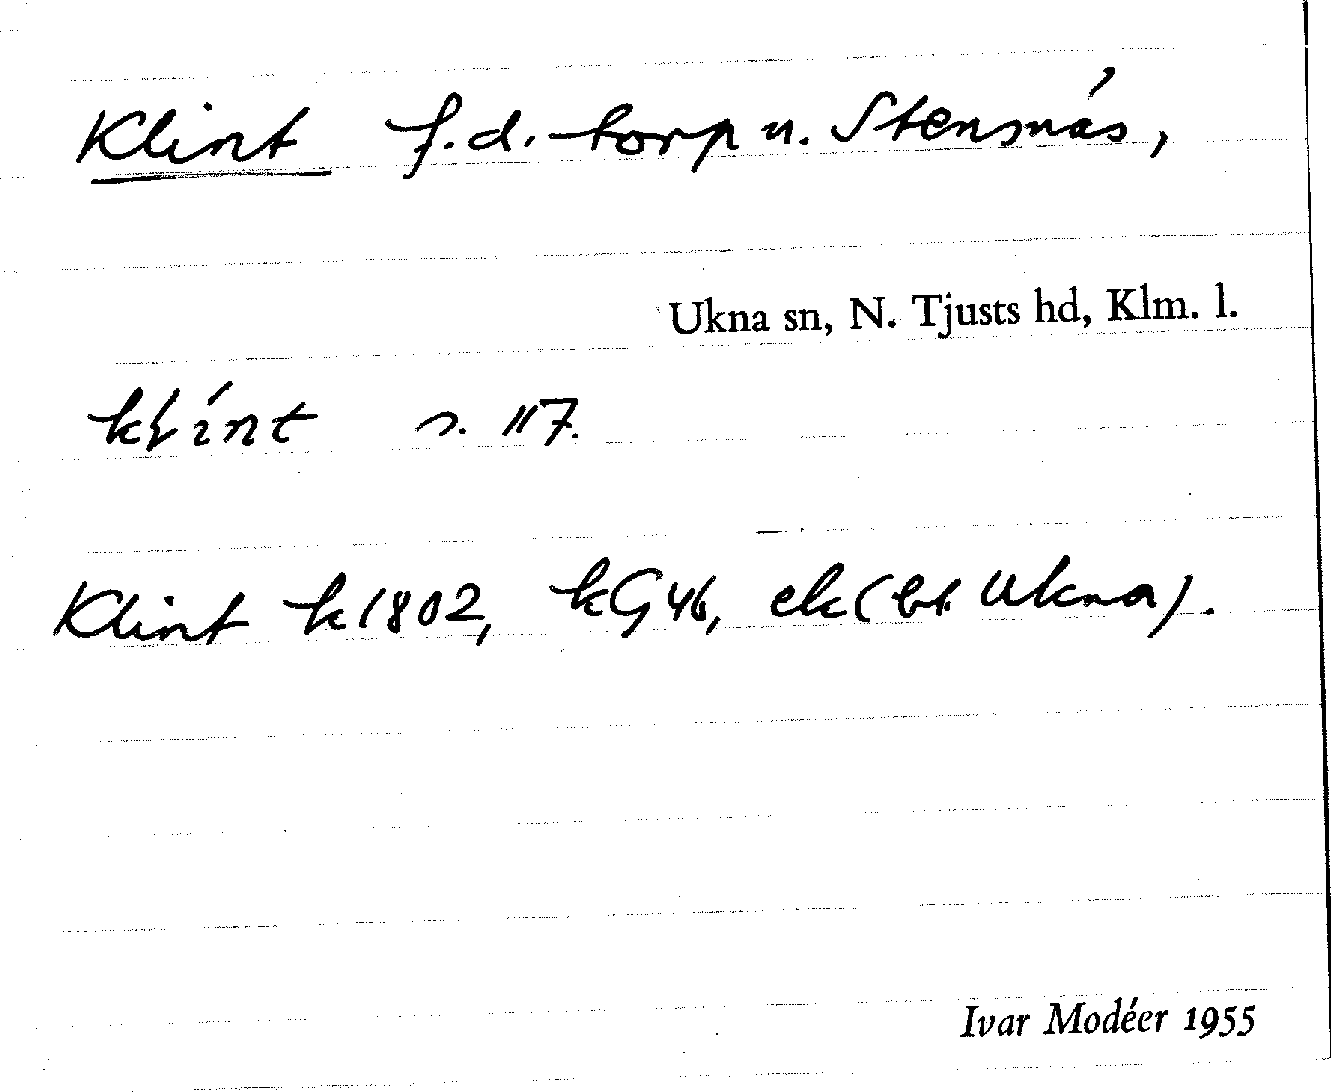 Klint f.d. torp u. Stensnäs,
Ukna sn, N. Tjusts hd, Klm. l.
klínt s. 117.
Klint k 1802, kG46, ek (bt Ukna).
Ivar Modéer 1955